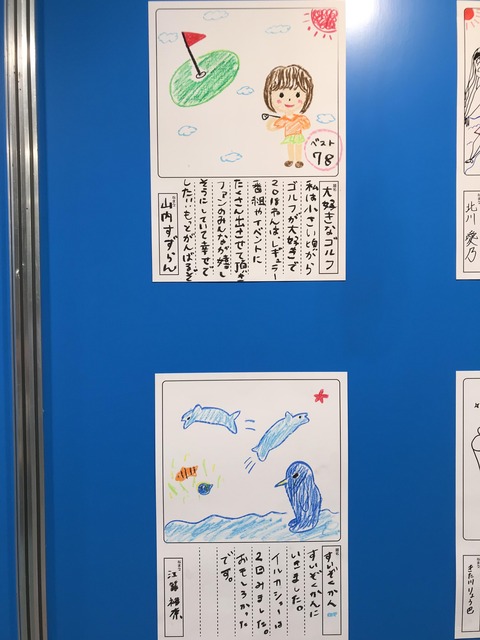 ベスト
78
題名
大好きなゴルフ
私は小さい頃から
ゴルフが大好きで
2018ねんは、レギュラー
番組やイベントに
たくさん出させて頂き
ファンのみんなが嬉し
そうにしていて幸せで
した!!もっとがんばるぞ
なまえ
山内すずらん
なまえ
北川 愛乃
題名
すいぞくかん
すいぞくかんに
いきました。
イルカショーは
2回みました。
おもしろかった
です。
なまえ
江籠 裕奈
なまえ
きた川りょう巴